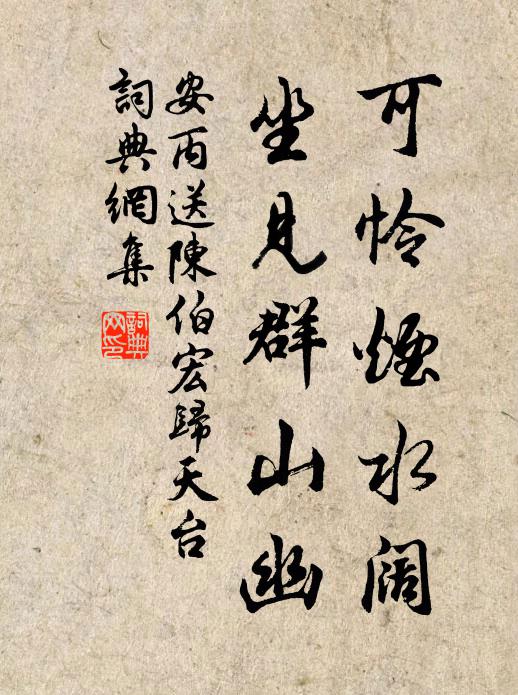 可怜煙水阔
坐見群山幽
安丙送陳伯宏歸天台
詞典網集
詞典網印